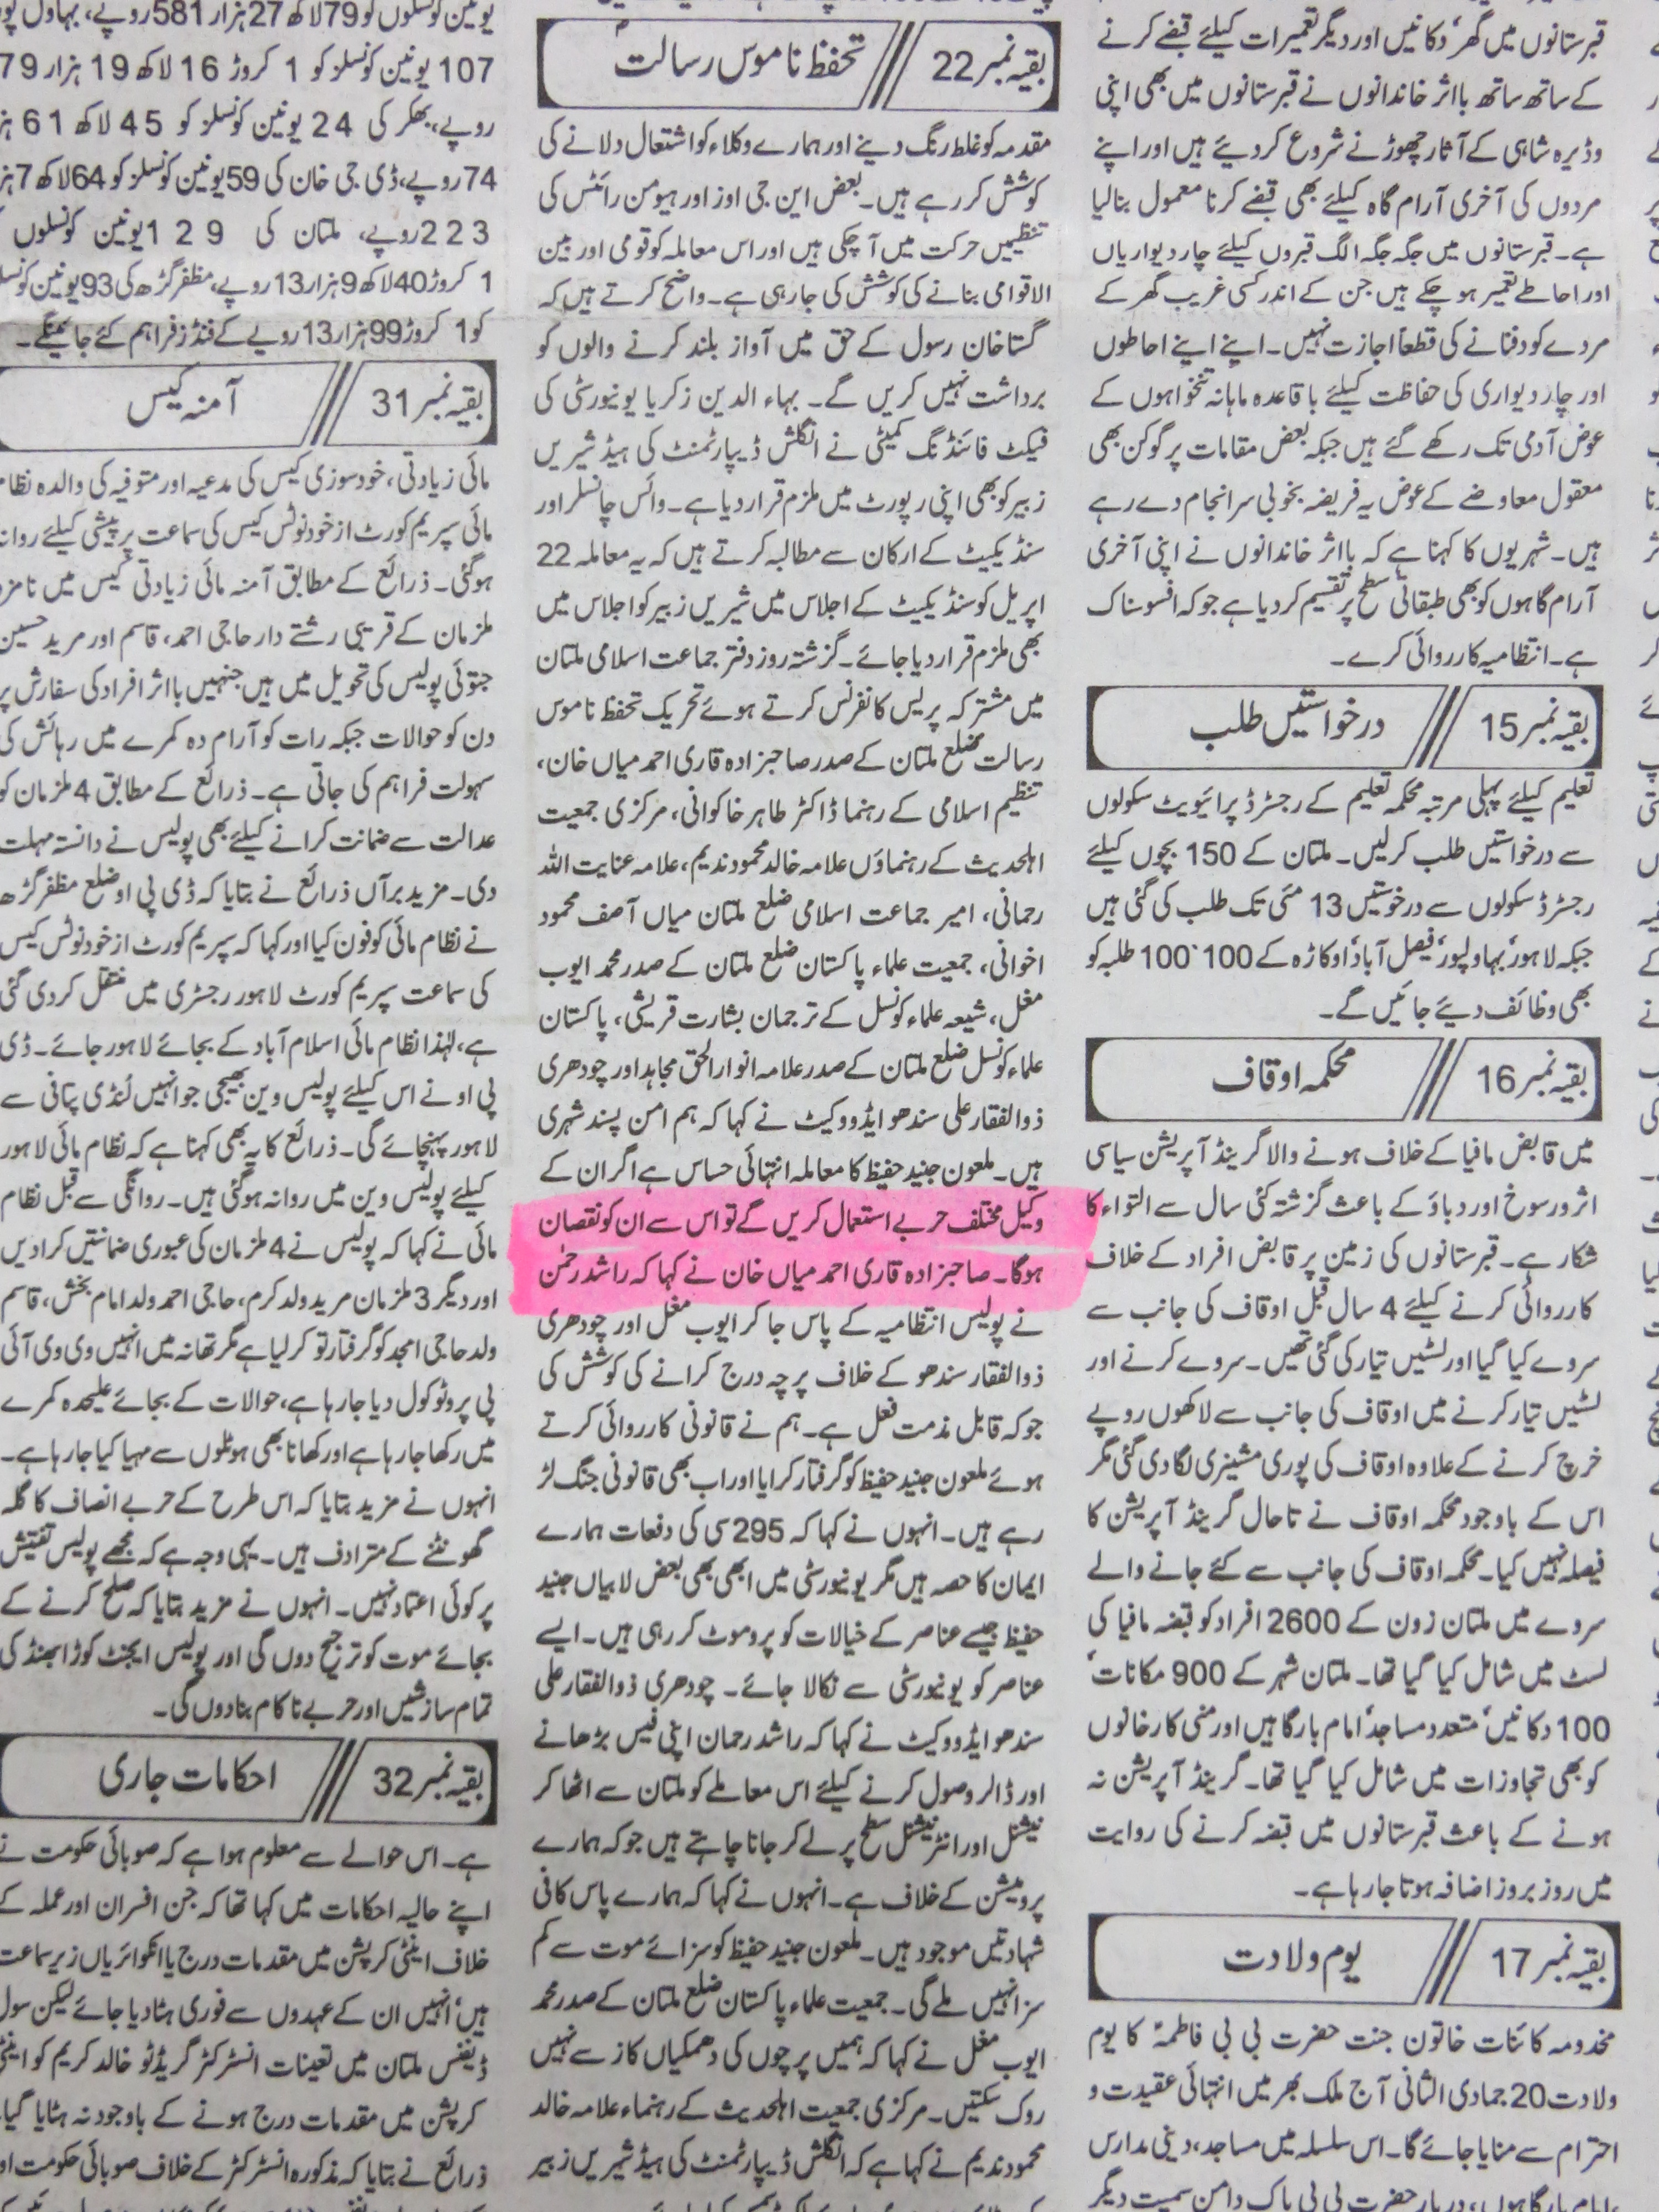 قبرستانوں میں گھر، دکانیں اور دیگر تعمیرات کیلئے قبضے کرنے
کے ساتھ ساتھ بااثر خاندانوں نے قبرستانوں میں بھی اپنی
وڈیرہ شاہی کے آثار چھوڑنے شروع کر دیئے ہیں اور اپنے
مردوں کی آخری آرام گاہ کیلئے بھی قبضے کرنا معمول بنا لیا
ہے۔ قبرستانوں میں جگہ جگہ الگ قبروں کیلئے چار دیواریاں
اور احاطے تعمیر ہو چکے ہیں جن کے اندر کسی غریب گھر کے
مردے کو دفنانے کی قطعاً اجازت نہیں۔ اپنے اپنے احاطوں
اور چار دیواری کی حفاظت کیلئے باقاعدہ ماہانہ تنخواہوں کے
عوض آدمی تک رکھے گئے ہیں جبکہ بعض مقامات پر گوکن بھی
معقول معاوضے کے عوض یہ فریضہ بخوبی سرانجام دے رہے
ہیں۔ شہریوں کا کہنا ہے کہ بااثر خاندانوں نے اپنی آخری
آرام گاہوں کو بھی طبقاتی سطح پر تقسیم کر دیا ہے جو کہ افسوسناک
ہے۔ انتظامیہ کارروائی کرے۔
بقیہ نمبر 15 درخواستیں طلب
تعلیم کیلئے پہلی مرتبہ محکمہ تعلیم کے رجسٹرڈ پرائیویٹ سکولوں
سے درخواستیں طلب کر لیں۔ ملتان کے 150 بچوں کیلئے
رجسٹرڈ سکولوں سے درخوستیں 13 مئی تک طلب کی گئی ہیں
جبکہ لاہور، بہاولپور، فیصل آباد، اوکاڑہ کے 100، 100 طلبہ کو
بھی وظائف دیئے جائیں گے۔
بقیہ نمبر 16 محکمہ اوقاف
میں قابض مافیا کے خلاف ہونے والا گرینڈ آپریشن سیاسی
اثرورسوخ اور دباؤ کے باعث گزشتہ کئی سال سے التواء کا
شکار ہے۔ قبرستانوں کی زمین پر قابض افراد کے خلاف
کارروائی کرنے کیلئے 4 سال قبل اوقاف کی جانب سے
سروے کیا گیا اور لسٹیں تیار کی گئی تھیں۔ سروے کرنے اور
لسٹیں تیار کرنے میں اوقاف کی جانب سے لاکھوں روپے
خرچ کرنے کے علاوہ اوقاف کی پوری مشینری لگا دی گئی مگر
اس کے باوجود محکمہ اوقاف نے تاحال گرینڈ آپریشن کا
فیصلہ نہیں کیا۔ محکمہ اوقاف کی جانب سے کئے جانے والے
سروے میں ملتان زون کے 2600 افراد کو قبضہ مافیا کی
لسٹ میں شامل کیا گیا تھا۔ ملتان شہر کے 900 مکانات،
100 دکانیں، متعدد مساجد، امام بارگاہیں اور منی کارخانوں
کو بھی تجاوزات میں شامل کیا گیا تھا۔ گرینڈ آپریشن نہ
ہونے کے باعث قبرستانوں میں قبضہ کرنے کی روایت
میں روز بروز اضافہ ہوتا جا رہا ہے۔
بقیہ نمبر 17 یوم ولادت
مخدومہ کائنات خاتون جنت حضرت بی بی فاطمہؑ کا یوم
ولادت 20 جمادی الثانی آج ملک بھر میں انتہائی عقیدت و
احترام سے منایا جائے گا۔ اس سلسلہ میں مساجد، دینی مدارس
بارگاہوں، دربار حضرت بی بی پاک دامن سمیت دیگر
بقیہ نمبر 22 تحفظ ناموس رسالتؐ
مقدمہ کو غلط رنگ دینے اور ہمارے وکلاء کو اشتعال دلانے کی
کوشش کر رہے ہیں۔ بعض این جی اوز اور ہیومن رائٹس کی
تنظیمیں حرکت میں آ چکی ہیں اور اس معاملہ کو قومی اور بین
الاقوامی بنانے کی کوشش کی جا رہی ہے۔ واضح کرتے ہیں کہ
گستاخان رسول کے حق میں آواز بلند کرنے والوں کو
برداشت نہیں کریں گے۔ بہاء الدین زکریا یونیورسٹی کی
فیکٹ فائنڈنگ کمیٹی نے انگلش ڈیپارٹمنٹ کی ہیڈ شیریں
زبیر کو بھی اپنی رپورٹ میں ملزم قرار دیا ہے۔ وائس چانسلر اور
سنڈیکیٹ کے ارکان سے مطالبہ کرتے ہیں کہ یہ معاملہ 22
اپریل کو سنڈیکیٹ کے اجلاس میں شیریں زبیر کو اجلاس میں
بھی ملزم قرار دیا جائے۔ گزشتہ روز دفتر جماعت اسلامی ملتان
میں مشترکہ پریس کانفرنس کرتے ہوئے تحریک تحفظ ناموس
رسالت ضلع ملتان کے صدر صاحبزادہ قاری احمد میاں خان،
تنظیم اسلامی کے رہنما ڈاکٹر طاہر خاکوانی، مرکزی جمعیت
اہلحدیث کے رہنماؤں علامہ خالد محمود ندیم، علامہ عنایت اللہ
رحمانی، امیر جماعت اسلامی ضلع ملتان میاں آصف محمود
اخوانی، جمعیت علماء پاکستان ضلع ملتان کے صدر محمد ایوب
مغل، شیعہ علماء کونسل کے ترجمان بشارت قریشی، پاکستان
علماء کونسل ضلع ملتان کے صدر علامہ انوار الحق مجاہد اور چودھری
ذوالفقار علی سندھو ایڈووکیٹ نے کہا کہ ہم امن پسند شہری
ہیں۔ ملعون جنید حفیظ کا معاملہ انتہائی حساس ہے اگر ان کے
وکیل مختلف حربے استعمال کریں گے تو اس سے ان کو نقصان
ہوگا۔ صاحبزادہ قاری احمد میاں خان نے کہا کہ راشد رحمٰن
نے پولیس انتظامیہ کے پاس جا کر ایوب مغل اور چودھری
ذوالفقار سندھو کے خلاف پرچہ درج کرانے کی کوشش کی
جو کہ قابل مذمت فعل ہے۔ ہم نے قانونی کارروائی کرتے
ہوئے ملعون جنید حفیظ کو گرفتار کرایا اور اب بھی قانونی جنگ لڑ
رہے ہیں۔ انہوں نے کہا کہ 295 سی کی دفعات ہمارے
ایمان کا حصہ ہیں مگر یونیورسٹی میں ابھی بھی بعض لابیاں جنید
حفیظ جیسے عناصر کے خیالات کو پروموٹ کر رہی ہیں۔ ایسے
عناصر کو یونیورسٹی سے نکالا جائے۔ چودھری ذوالفقار علی
سندھو ایڈووکیٹ نے کہا کہ راشد رحمان اپنی فیس بڑھانے
اور ڈالر وصول کرنے کیلئے اس معاملے کو ملتان سے اٹھا کر
نیشنل اور انٹرنیشنل سطح پر لے کر جانا چاہتے ہیں جو کہ ہمارے
پروفیشن کے خلاف ہے۔ انہوں نے کہا کہ ہمارے پاس کافی
شہادتیں موجود ہیں۔ ملعون جنید حفیظ کو سزائے موت سے کم
سزا نہیں ملے گی۔ جمعیت علماء پاکستان ضلع ملتان کے صدر محمد
ایوب مغل نے کہا کہ ہمیں پرچوں کی دھمکیاں کاز سے نہیں
روک سکتیں۔ مرکزی جمعیت اہلحدیث کے رہنماء علامہ خالد
محمود ندیم نے کہا ہے کہ انگلش ڈیپارٹمنٹ کی ہیڈ شیریں زبیر
یونین کونسلوں کو 79 لاکھ 27 ہزار 581 روپے، بہاول
107 یونین کونسلز کو 1 کروڑ 16 لاکھ 19 ہزار 79
روپے، بھکر کی 24 یونین کونسلز کو 45 لاکھ 61
74 روپے، ڈی جی خان کی 59 یونین کونسلز کو 64 لاکھ 7
223 روپے، ملتان کی 129 یونین کونسلوں
1 کروڑ 40 لاکھ 9 ہزار 13 روپے، مظفرگڑھ کی 93 یونین
کو 1 کروڑ 99 ہزار 13 روپے کے فنڈز فراہم کئے جائینگے۔
بقیہ نمبر 31 آمنہ کیس
مائی زیادتی، خودسوزی کیس کی مدعیہ اور متوفیہ کی والدہ نظام
مائی سپریم کورٹ از خود نوٹس کیس کی سماعت پر پیشی کیلئے روانہ
ہوگئی۔ ذرائع کے مطابق آمنہ مائی زیادتی کیس میں نامزد
ملزمان کے قریبی رشتے دار حاجی احمد، قاسم اور مرید حسین
جتوئی پولیس کی تحویل میں ہیں جنہیں بااثر افراد کی سفارش پر
دن کو حوالات جبکہ رات کو آرام دہ کمرے میں رہائش کی
سہولت فراہم کی جاتی ہے۔ ذرائع کے مطابق 4 ملزمان کو
عدالت سے ضمانت کرانے کیلئے بھی پولیس نے دانستہ مہلت
دی۔ مزید برآں ذرائع نے بتایا کہ ڈی پی او ضلع مظفرگڑھ
نے نظام مائی کو فون کیا اور کہا کہ سپریم کورٹ از خود نوٹس کیس
کی سماعت سپریم کورٹ لاہور رجسٹری میں منتقل کر دی گئی
ہے، لہٰذا نظام مائی اسلام آباد کے بجائے لاہور جائے۔ ڈی
پی او نے اس کیلئے پولیس وین بھیجی جو انہیں لنڈی پتافی سے
لاہور پہنچائے گی۔ ذرائع کا یہ بھی کہنا ہے کہ نظام مائی لاہور
کیلئے پولیس وین میں روانہ ہوگئی ہیں۔ روانگی سے قبل نظام
مائی نے کہا کہ پولیس نے 4 ملزمان کی عبوری ضمانتیں کرا دیں
اور دیگر 3 ملزمان مرید ولد کرم، حاجی احمد ولد امام بخش، قاسم
ولد حاجی امجد کو گرفتار تو کر لیا ہے مگر تھانہ میں انہیں وی وی آئی
پی پروٹوکول دیا جا رہا ہے، حوالات کے بجائے علیحدہ کمرے
میں رکھا جا رہا ہے اور کھانا بھی ہوٹلوں سے مہیا کیا جا رہا ہے۔
انہوں نے مزید بتایا کہ اس طرح کے حربے انصاف کا گلہ
گھونٹنے کے مترادف ہیں۔ یہی وجہ ہے کہ مجھے پولیس تفتیش
پر کوئی اعتماد نہیں۔ انہوں نے مزید بتایا کہ صلح کرنے کے
بجائے موت کو ترجیح دوں گی اور پولیس ایجنٹ کوڑا بھنڈ کی
تمام سازشیں اور حربے ناکام بنا دوں گی۔
بقیہ نمبر 32 احکامات جاری
ہے۔ اس حوالے سے معلوم ہوا ہے کہ صوبائی حکومت نے
اپنے حالیہ احکامات میں کہا تھا کہ جن افسران اور عملہ کے
خلاف اینٹی کرپشن میں مقدمات درج یا انکوائریاں زیر سماعت
ہیں، انہیں ان کے عہدوں سے فوری ہٹا دیا جائے لیکن سول
ڈیفنس ملتان میں تعینات انسٹرکٹر گریڈٹو خالد کریم کو اینٹی
کرپشن میں مقدمات درج ہونے کے باوجود نہ ہٹایا گیا
ذرائع نے بتایا کہ مذکورہ انسٹرکٹر کے خلاف صوبائی حکومت اور